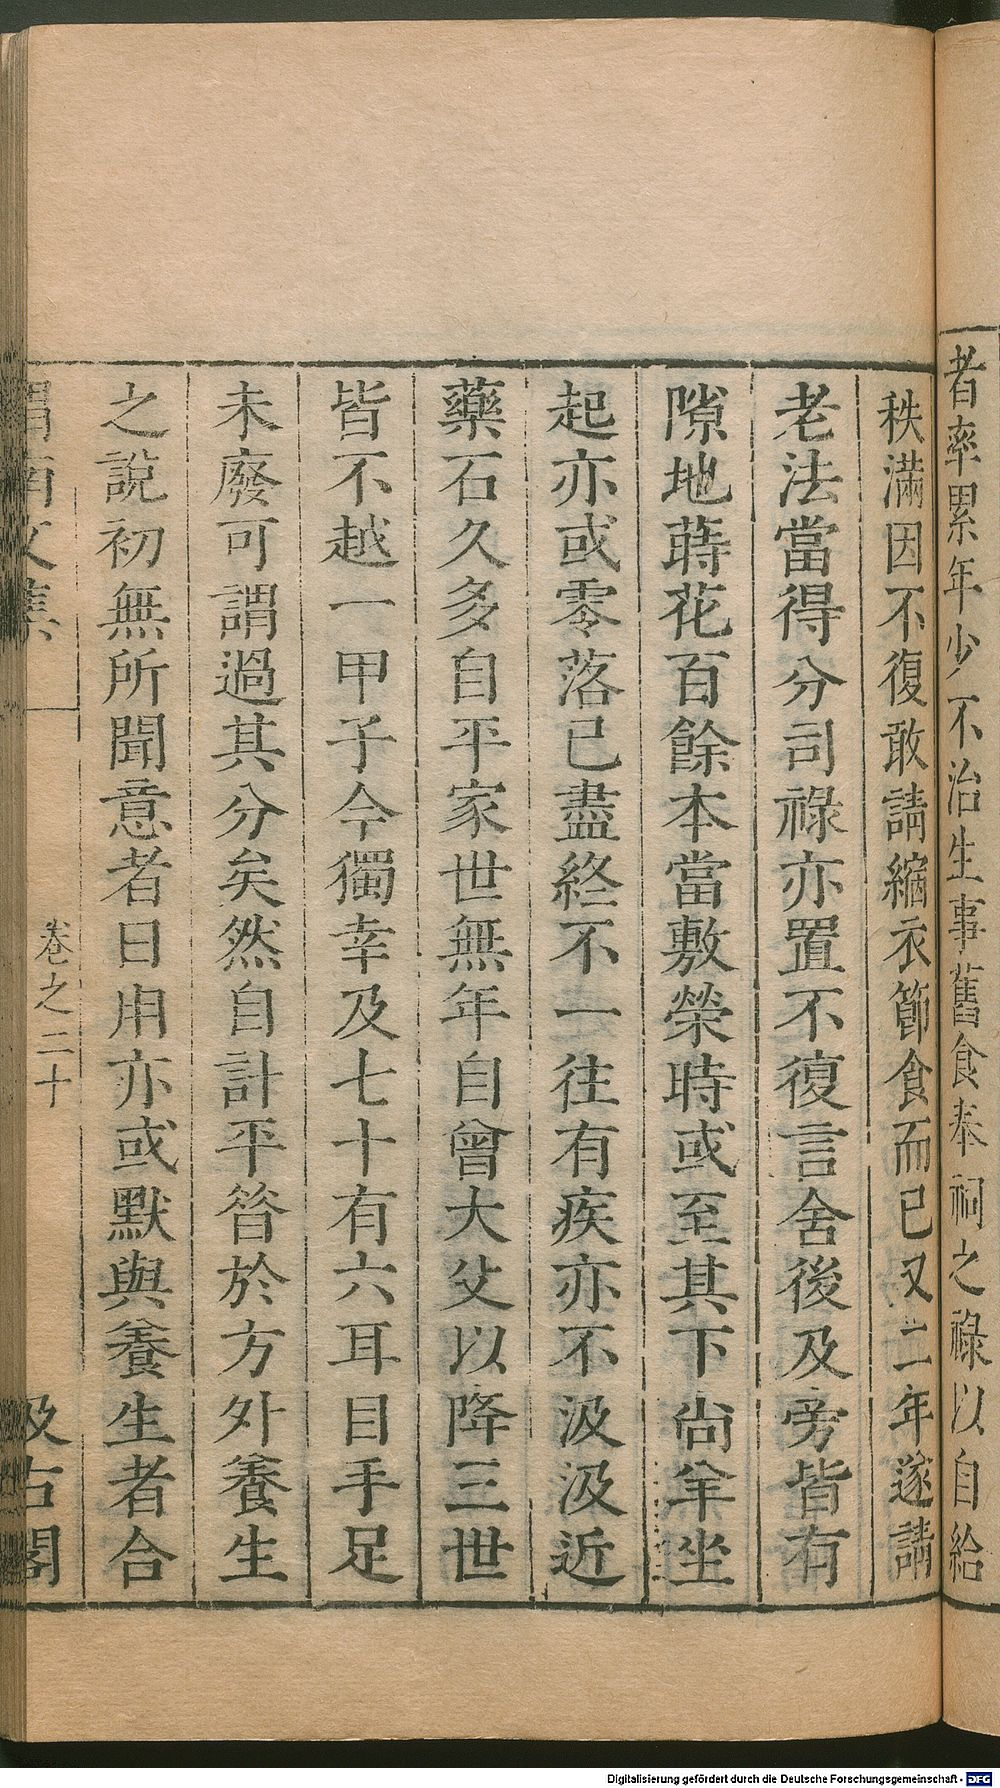 者率累年少不治生事舊食奉祠之祿以自給
秩滿因不復敢請縮衣節食而已又二年遂請
老法當得分司祿亦置不復言舍後及旁皆有
隙地蒔花百餘本當敷榮時或至其下尙羊坐
起亦或零落已盡終不一往有疾亦不汲汲近
藥石久多自平家世無年自曾大父以降三世
皆不越一甲子今獨幸及七十有六耳目手足
未廢可謂過其分矣然自計平昝於方外養生
之說初無所聞意者日用亦或默與養生者合
渭南文集
卷之二十
汲古閣
Digitalisierung gefördert durch die Deutsche Forschungsgemeinschaft - DFG